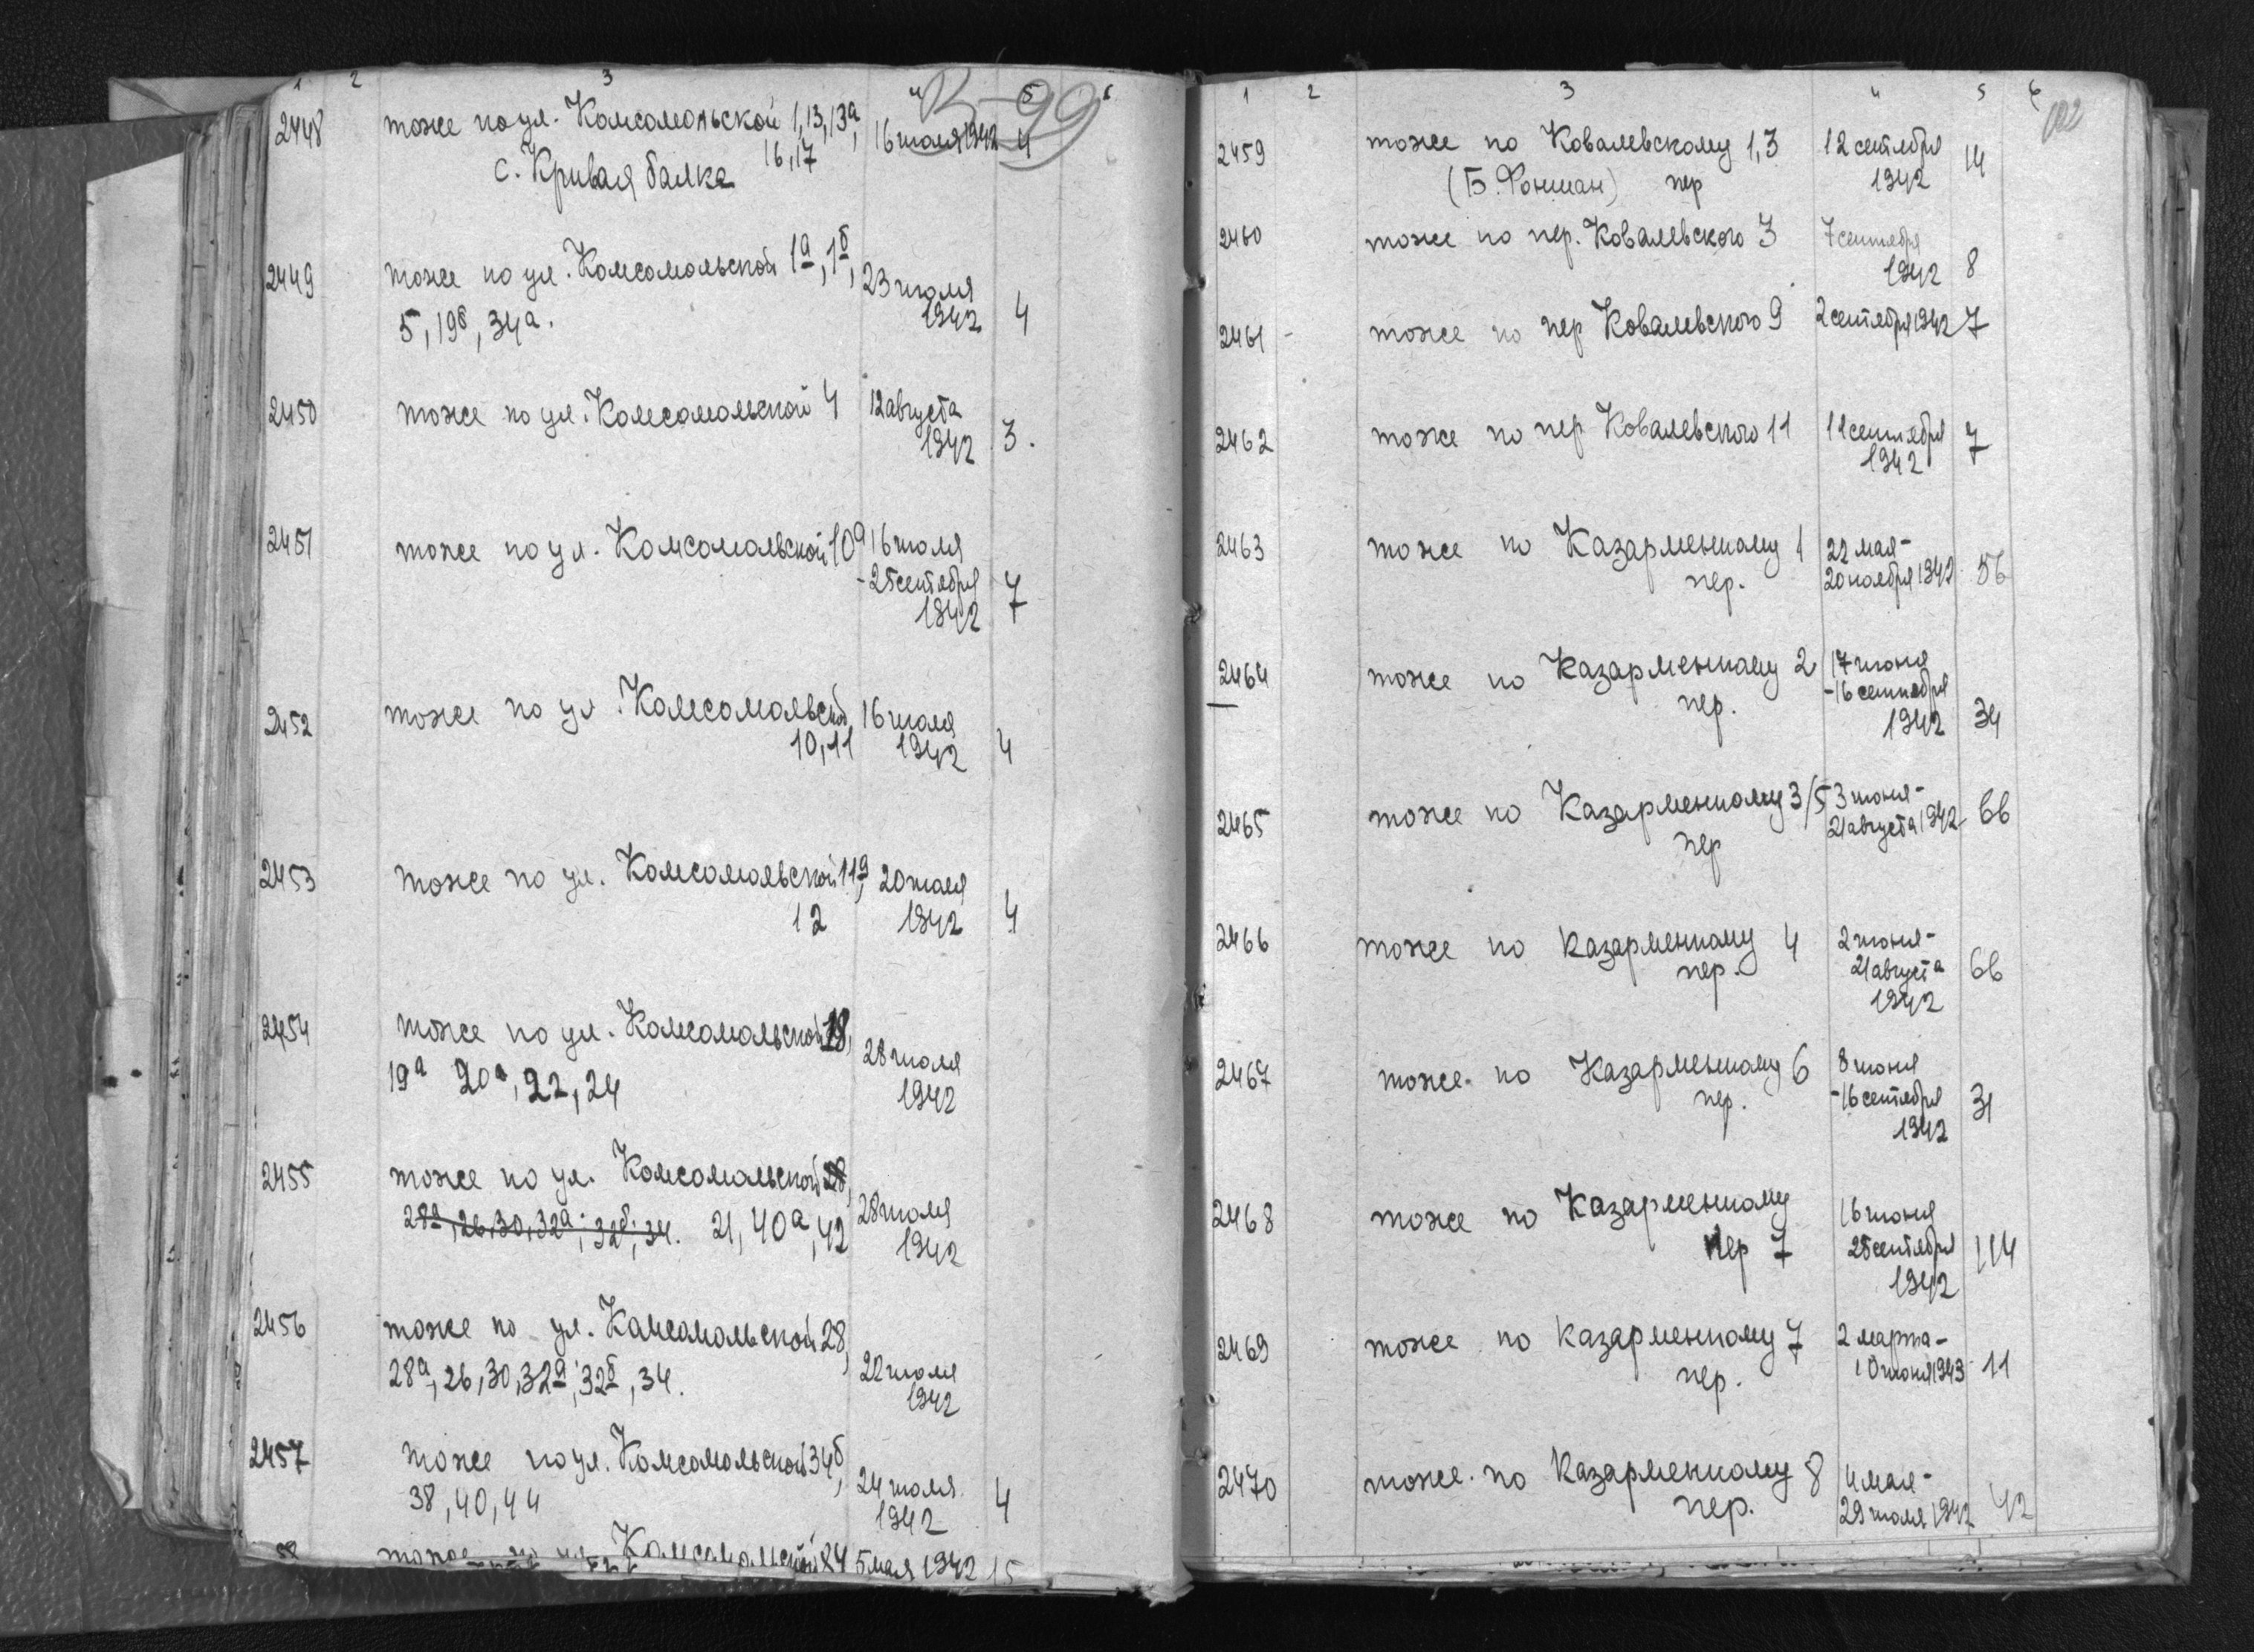 1 2 3 4 5 6
В-99
2448 тоже по ул. Комсомольской 1, 13, 13а, 16 июля 1942 4
16, 17
с. Кривая балка
2449 тоже по ул. Комсомольской 1а, 1б, 23 июля
5, 19б, 34а. 1942 4
2450 тоже по ул. Комсомольской 4 12 августа
1942 3.
2451 тоже по ул. Комсомольской 10а 16 июля
- 25 сентября
1942 7
2452 тоже по ул. Комсомольской, 16 июля
10, 11 1942 4
2453 тоже по ул. Комсомольской 11а, 20 июля
12 1942 4
2454 тоже по ул. Комсомольской 18, 28 июля
19а 20а, 22, 24 1942
2455 тоже по ул. Комсомольской 28,
28а, 26, 30, 32а, 32б, 34. 21, 40а, 42 28 июля
1942
2456 тоже по ул. Комсомольской 28,
28а, 26, 30, 32а, 32б, 34. 22 июля
1942
2457 тоже по ул. Комсомольской 34б,
38, 40, 44 24 июля
1942 4
58 тоже по ул. Комсомольской 84 5 мая 1942 15
1 2 3 4 5 6
102
2459 тоже по Ковалевскому 1, 3 12 сентября
(Б. Фонтан) пер 1942 14
2460 тоже по пер. Ковалевского 3 7 сентября
1942 8
2461 - тоже по пер Ковалевского 9 2 сентября 1942 7
2462 тоже по пер Ковалевского 11 11 сентября
1942 7
2463 тоже по Казарменному 1 22 мая -
пер. 20 ноября 1942 56
2464 тоже по Казарменному 2 17 июня
пер. - 16 сентября
1942 34
2465 тоже по Казарменному 3/5 3 июня -
пер 21 августа 1942 66
2466 тоже по Казарменному 4 2 июня -
пер. 21 августа
1942 66
2467 тоже по Казарменному 6 8 июня
пер. - 16 сентября
1942 31
2468 тоже по Казарменному 16 июня
пер 7 25 сентября
1942 114
2469 тоже по Казарменному 7 2 марта -
пер. 10 июня 1943 11
2470 тоже по Казарменному 8 4 мая -
пер. 29 июля 1942 42